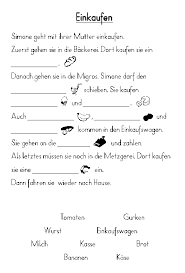 Einkaufen
Simone geht mit ihrer Mutter einkaufen.
Zuerst gehen sie in die Bäckerei. Dort kaufen sie ein
Danach gehen sie in die Migros. Simone darf den
schieben. Sie kaufen
, und
Auch und
kommen in den Einkaufswagen.
Sie gehen an die und zahlen.
Als letztes müssen sie noch in die Metzgerei. Dort kaufen
sie eine ein.
Dann fahren sie wieder nach Hause.
Tomaten Gurken
Wurst Einkaufswagen
Milch Kasse Brot
Bananen Käse